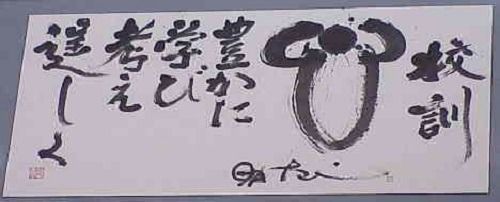 校訓
豊かに
学び
考え
逞しく